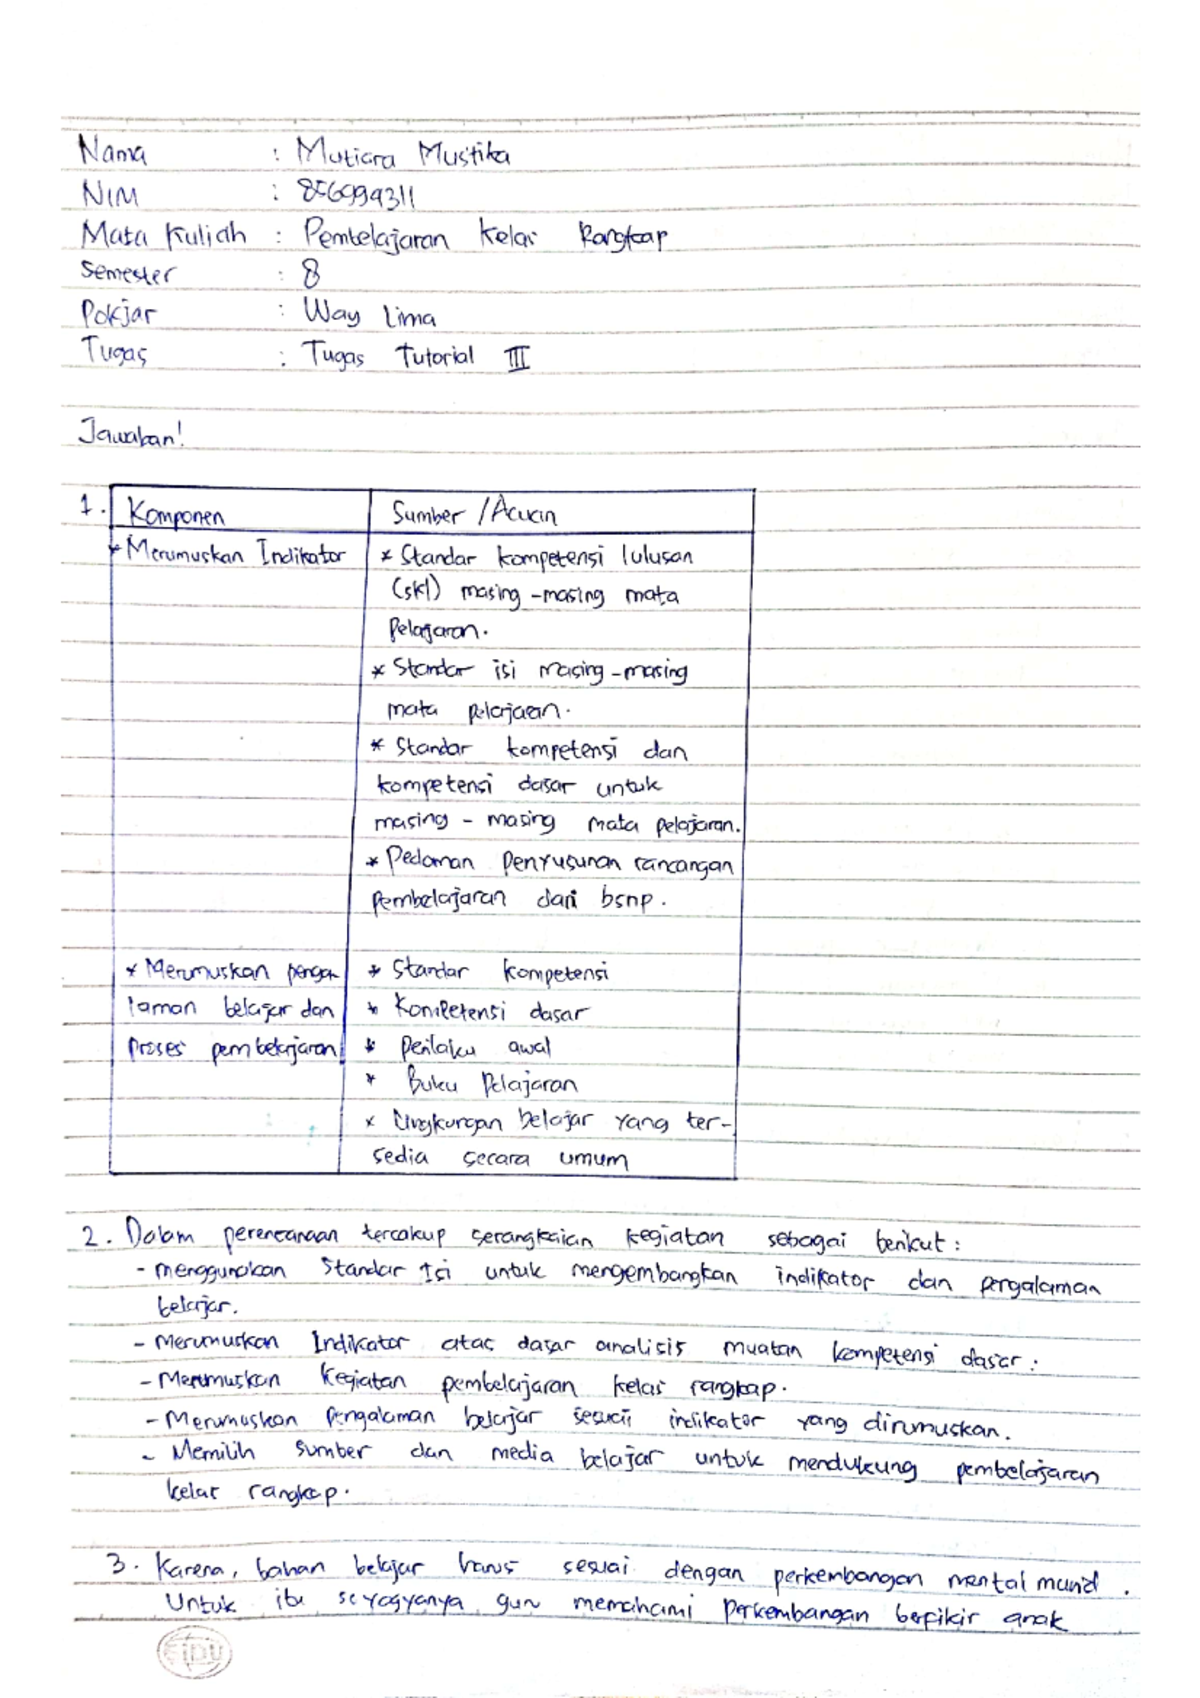 Nama : Mutiara Mustika
NIM : 856999311
Mata Kuliah : Pembelajaran Kelas Rangkap
Semester : 8
Pokjar : Way Lima
Tugas : Tugas Tutorial III
Jawaban!
1. Komponen Sumber / Acuan
* Merumuskan Indikator * Standar kompetensi lulusan
(skl) masing-masing mata
pelajaran.
* Standar isi masing-masing
mata pelajaran.
* Standar kompetensi dan
kompetensi dasar untuk
masing-masing mata pelajaran.
* Pedoman penyusunan rancangan
pembelajaran dari bsnp.
* Merumuskan penga * Standar kompetensi
laman belajar dan * Kompetensi dasar
proses pembelajaran * Perilaku awal
* Buku Pelajaran
* Lingkungan belajar yang ter-
sedia secara umum
2. Dalam perencanaan tercakup serangkaian kegiatan sebagai berikut :
- menggunakan Standar Isi untuk mengembangkan indikator dan pengalaman
belajar.
- Merumuskan Indikator atas dasar analisis muatan kompetensi dasar :
- Merumuskan kegiatan pembelajaran kelas rangkap.
- Merumuskan pengalaman belajar sesuai indikator yang dirumuskan.
- Memilih sumber dan media belajar untuk mendukung pembelajaran
kelas rangkap.
3. Karena, bahan belajar harus sesuai dengan perkembangan mental murid.
Untuk itu seyogyanya guru memahami perkembangan berfikir anak